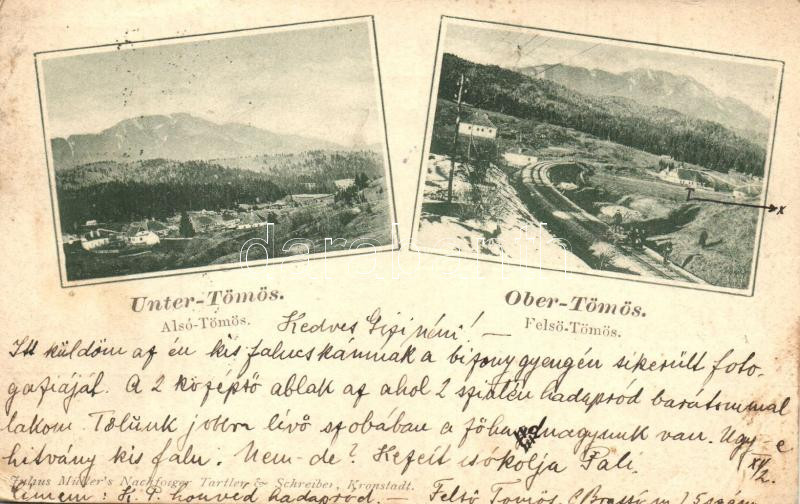 Unter-Tömös.
Alsó-Tömös.
Ober-Tömös.
Felsö-Tömös.
x
Kedves Gizi néni! —
Itt küldöm az én kis falucskámnak a bizony gyengén sikerült foto-
gafiáját. A 2 középső ablak az ahol 2 szintén hadapród barátommal
lakom. Tőlünk jobbra lévő szobában a főhadnagyunk van. Ugy-e
hitvány kis falu. Nem-de? Kezeit csókolja Pali.
XI/2.
Julius Müller's Nachfolger Tartler & Schreiber, Kronstadt.
Címem: K. P. honvéd hadapród. — Felső Tömös,
darabanth